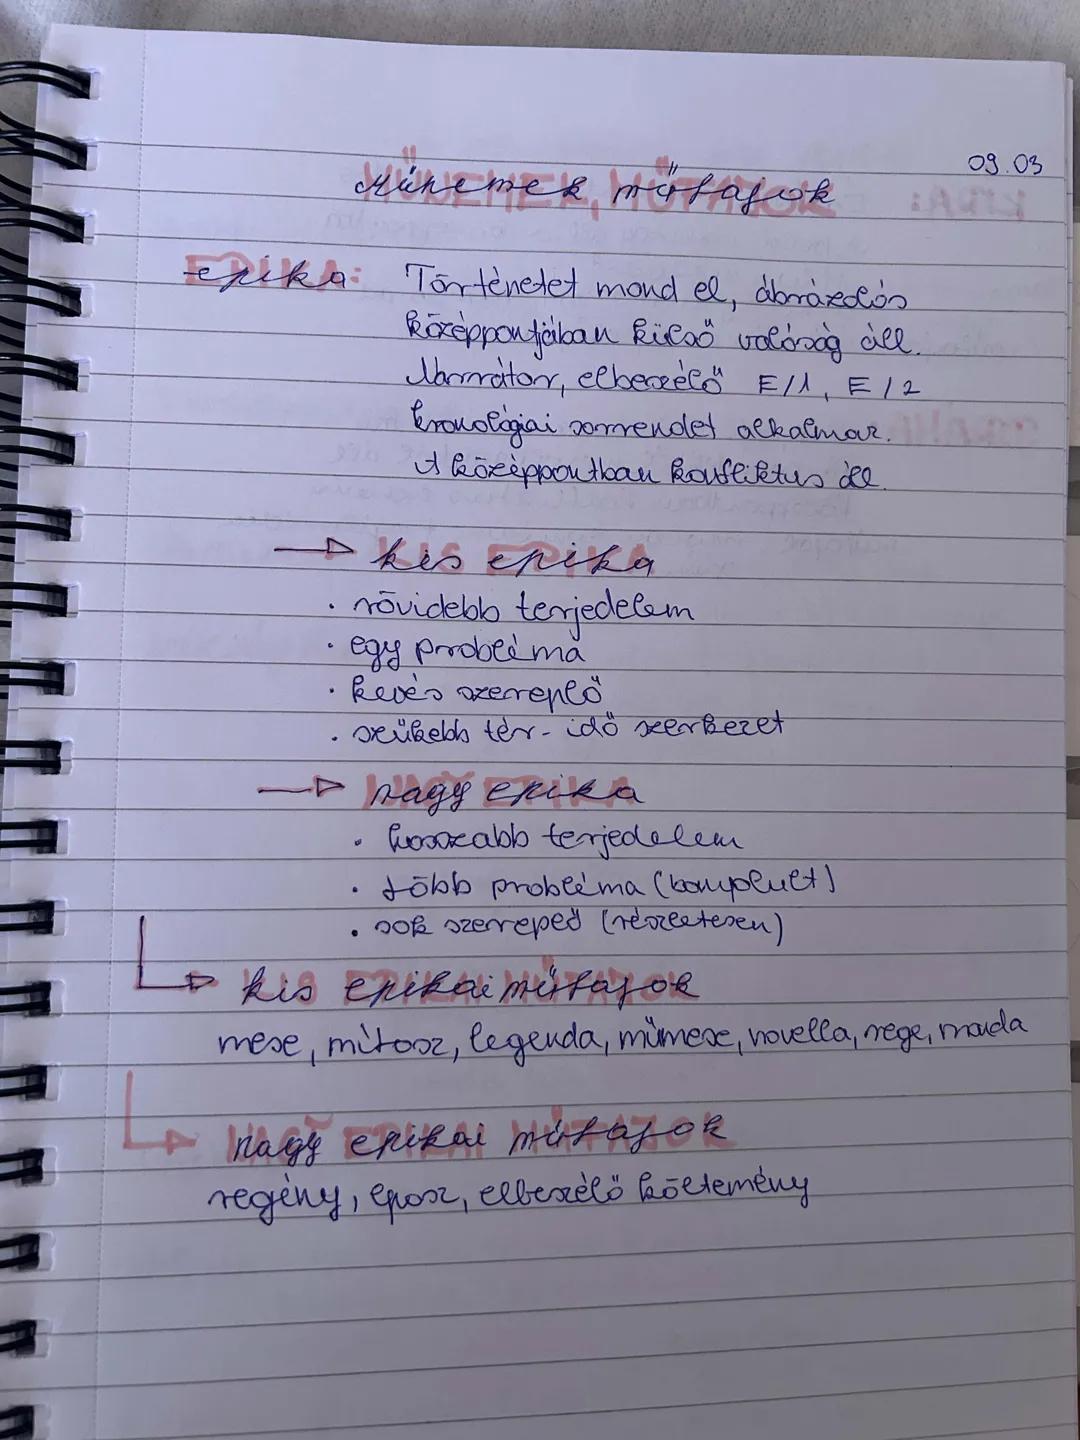 09.03
Műnemek, műfajok
MŰNEMEK, MŰFAJOK
epika:
EPIKA:
Történetet mond el, ábrázolás
középpontjában külső valóság áll.
Narrátor, elbeszélő E/1, E/2
kronológiai sorrendet alkalmaz.
A középpontban konfliktus áll.
→ kis epika
KIS EPIKA
· rövidebb terjedelem
· egy probléma
· kevés szereplő
· szűkebb tér-idő szerkezet
→ nagy epika
NAGY EPIKA
· hosszabb terjedelem
· több probléma (komplult)
· sok szereped (részletesen)
kis epikai műfajok
KIS EPIKAI MŰFAJOK
mese, mítosz, legenda, műmese, novella, rege, monda
nagy epikai műfajok
NAGY EPIKAI MŰFAJOK
regény, eposz, elbeszélő költemény